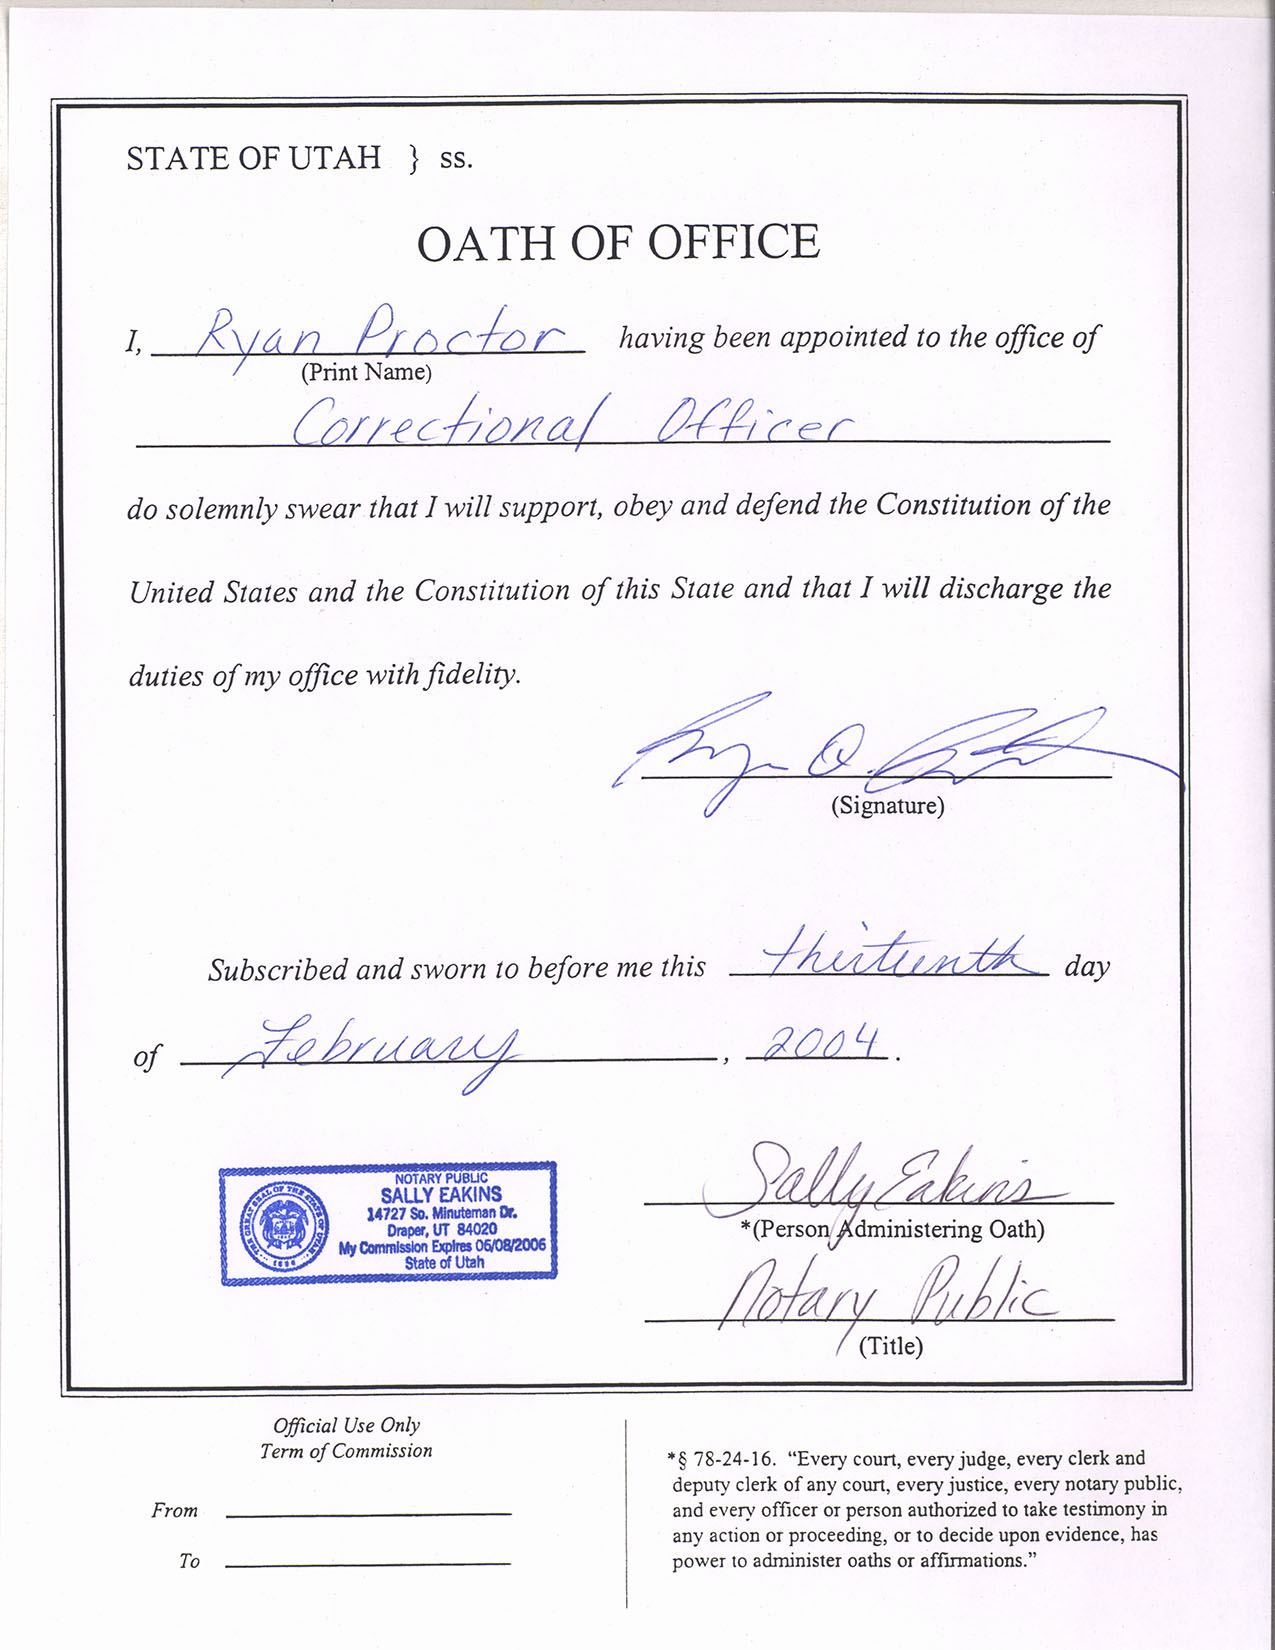 STATE OF UTAH } ss.
OATH OF OFFICE
I, Ryan Proctor having been appointed to the office of
(Print Name)
Correctional Officer
do solemnly swear that I will support, obey and defend the Constitution of the
United States and the Constitution of this State and that I will discharge the
duties of my office with fidelity.
(Signature)
Subscribed and sworn to before me this thirteenth day
of February, 2004.
NOTARY PUBLIC
SALLY EAKINS
14727 So. Minuteman Dr.
Draper, UT 84020
My Commission Expires 06/08/2006
State of Utah
THE GREAT SEAL OF THE STATE OF UTAH
1896
Sally Eakins
*(Person Administering Oath)
Notary Public
(Title)
Official Use Only
Term of Commission
From
To
*§ 78-24-16. “Every court, every judge, every clerk and
deputy clerk of any court, every justice, every notary public,
and every officer or person authorized to take testimony in
any action or proceeding, or to decide upon evidence, has
power to administer oaths or affirmations.”